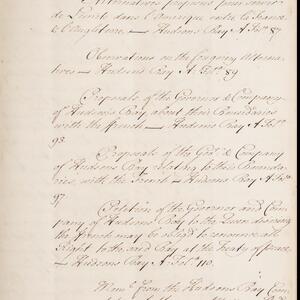 Alternatives proposed pour
de Limits dans l'Amerique entre la France
& l'Angleterre — Hudsons Bay A Fol. 87
Observations on the foregoing Alterna-
tives — Hudsons Bay A Fol. 89
Proposals of the Governor & Company
of Hudsons Bay about their Boundaries
with the French — Hudsons Bay A Fol.
93.
Proposals of the Govr. & Company
of Hudsons Bay relating to their Bounda-
ries with the French — Hudsons Bay A Fol.
97.
Petition of the Governor and Com-
pany of Hudsons Bay to the Queen desiring
the French may be obliged to renounce all
Right to the said Bay at the Treaty of peace
— Hudsons Bay A Fol. 110.
from the Hudsons Bay Com-